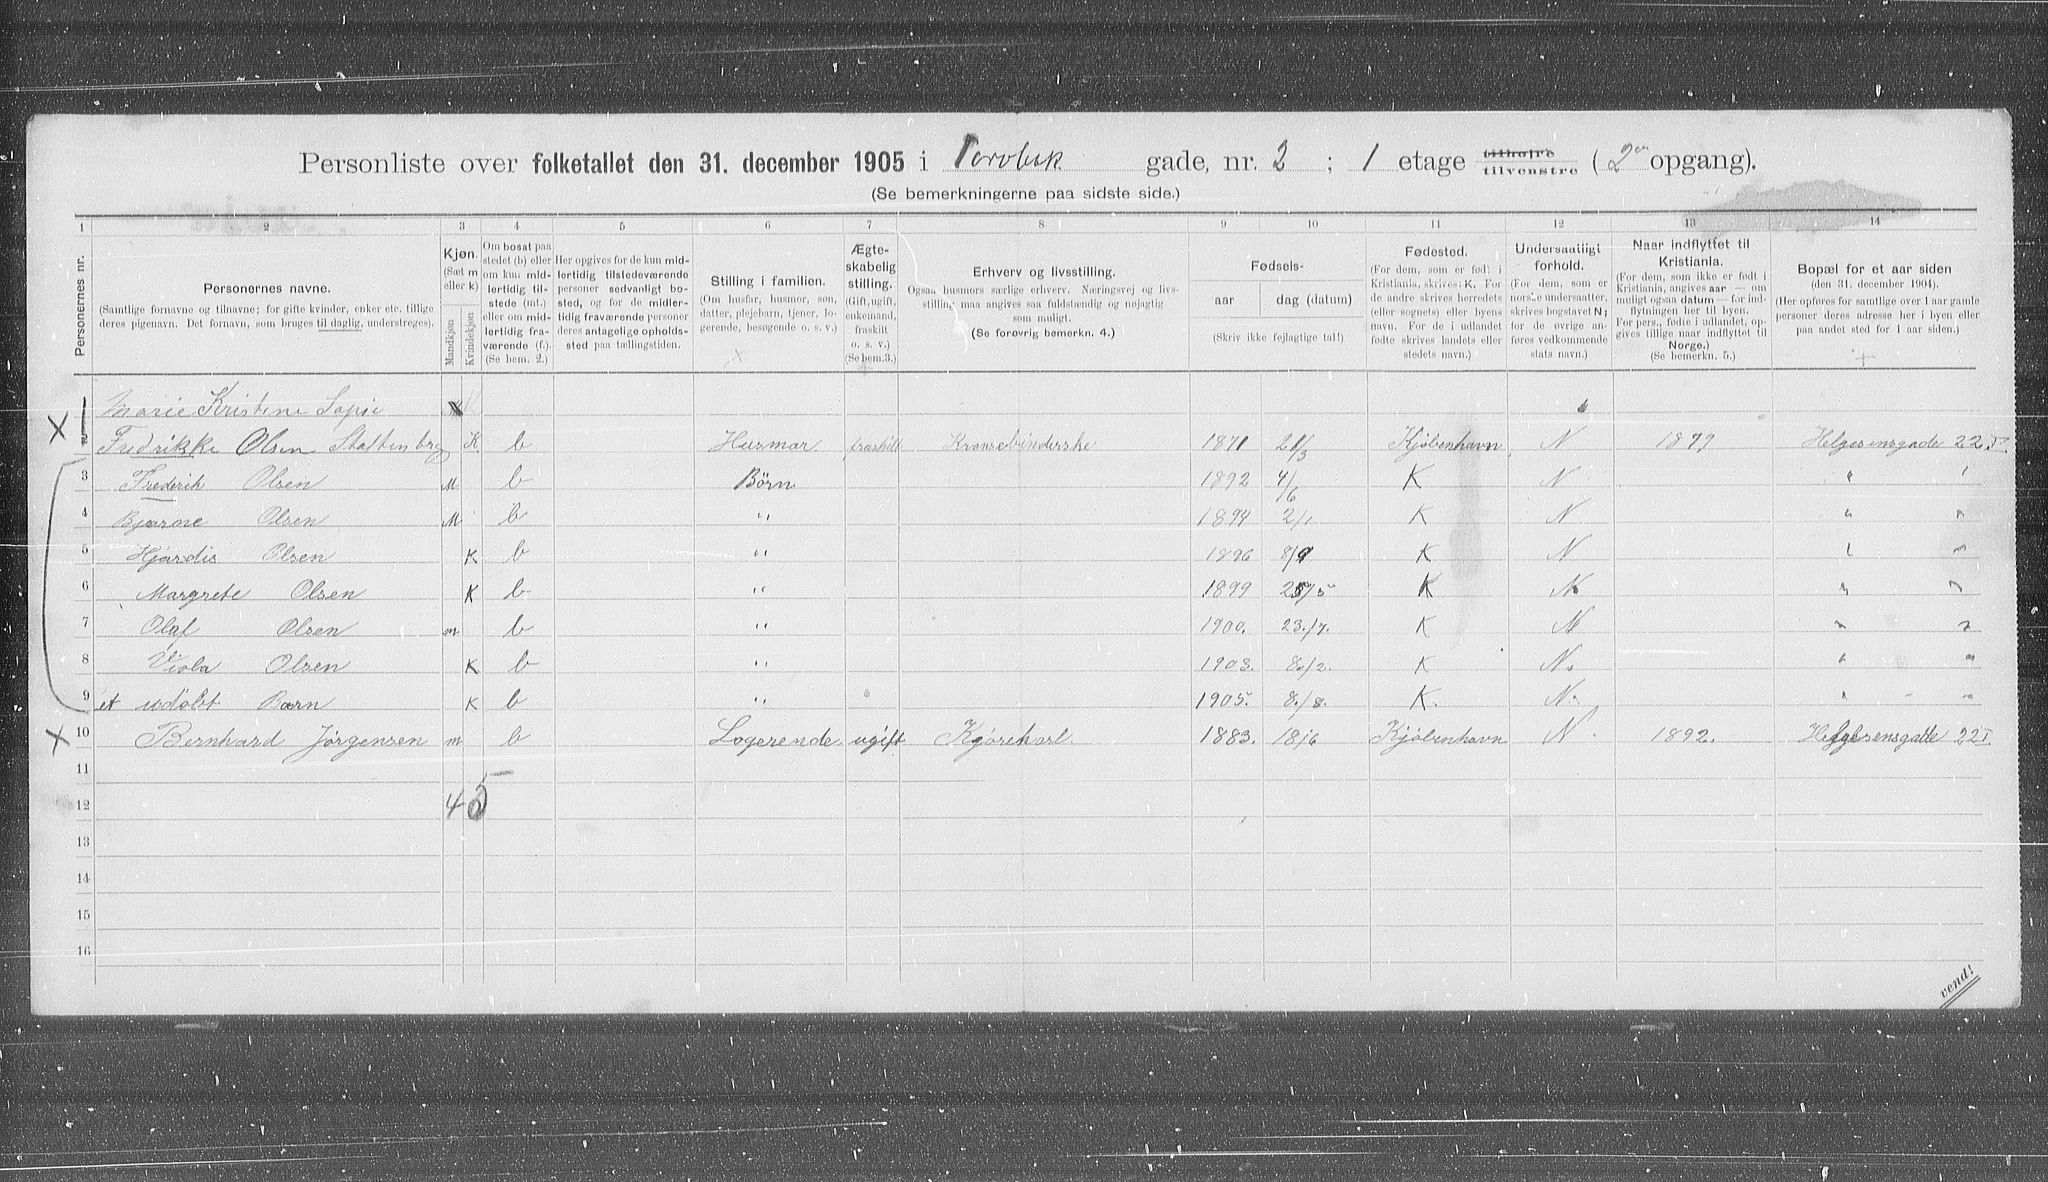 Personliste over folketallet den 31. december 1905 i gade, nr. 2 ; 1 etage tilhøjre tilvenstre ( 2en opgang).
(Se bemerkningerne paa sidste side.)
1 2 3 4 5 6 7 8 9 10 11 12 13 14
Personernes nr.
Personernes navne.
(Samtlige fornavne og tilnavne; for gifte kvinder, enker etc. tillige deres pigenavn. Det fornavn, som bruges til daglig, understreges).
Kjøn.
(Sæt m eller k)
Mandkjøn
Kvindekjøn
Om bosat paa stedet (b) eller om kun midlertidig tilstede (mt.) eller om midlertidig fraværende (f.). (Se bem. 2.)
Her opgives for de kun midlertidig tilstedeværende personer sedvanligt bosted, og for de midlertidig fraværende personer deres antagelige opholdssted paa tællingstiden.
Stilling i familien.
(Om husfar, husmor, søn, datter, plejebarn, tjener, logerende, besøgende o. s. v.)
Ægteskabelig stilling.
(Gift, ugift, enkemand, fraskilt o. s. v.)
(Se bem.3.)
Erhverv og livsstilling.
Ogsaa husmors særlige erhverv. Næringsvej og livsstilling maa angives saa fuldstændig og nøjagtig som muligt.
(Se forøvrig bemerkn. 4.)
Fødsels-
aar dag (datum)
(Skriv ikke fejlagtige tal!)
Fødested.
(For dem, som er født i Kristiania, skrives: K. For de andre skrives herredets (eller sognets) eller byens navn. For de i udlandet fødte skrives landets eller stedets navn.)
Undersaatligt forhold.
(For dem, som er norske undersaatter, skrives bogstavet N; for de øvrige anføres vedkommende stats navn.)
Naar indflyttet til Kristiania.
(For dem, som ikke er født i Kristiania, angives aar — om muligt ogsaa datum — for indflytningen her til byen. For pers., fødte i udlandet, opgives tillige naar indflyttet til Norge.)
(Se bemerkn. 5.)
Bopæl for et aar siden
(den 31. december 1904).
(Her opføres for samtlige over 1 aar gamle personer deres adresse her i byen eller paa andet sted for 1 aar siden.)
Marie Kristine
X 2 Fredrikke Olsen K b Husmor fraskilt Kransebinderske 1871 21/3 Kjøbenhavn N 1879 Helgesensgade 22 I
3 Frederik Olsen M b Børn 1892 4/6 K N " "
4 Bjarne Olsen M b " 1894 2/1 K N " "
5 Hjørdis Olsen K b " 1896 8/9 K N " "
6 Margrete Olsen K b " 1899 25/5 K N " "
7 Olaf Olsen m b " 1900. 23./7. K N " "
8 Viola Olsen K b " 1903. 8./2. K N. " "
9 et udøbt Barn K b " 1905. 8./8. K. N. " "
X 10 Bernhard Jørgensen m b Logerende. ugift Kjørekarl. 1883. 18/6 Kjøbenhavn N. 1892. Helgesensgatte 22 I
11
12 4 5
13
14
15
16
vend!